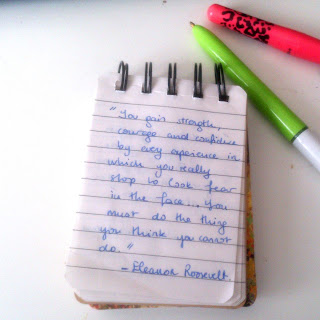 "You gain strength,
courage and confidence
by every experience in
which you really
stop to look fear
in the face... You
must do the thing
you think you cannot
do."
- Eleanor Roosevelt.